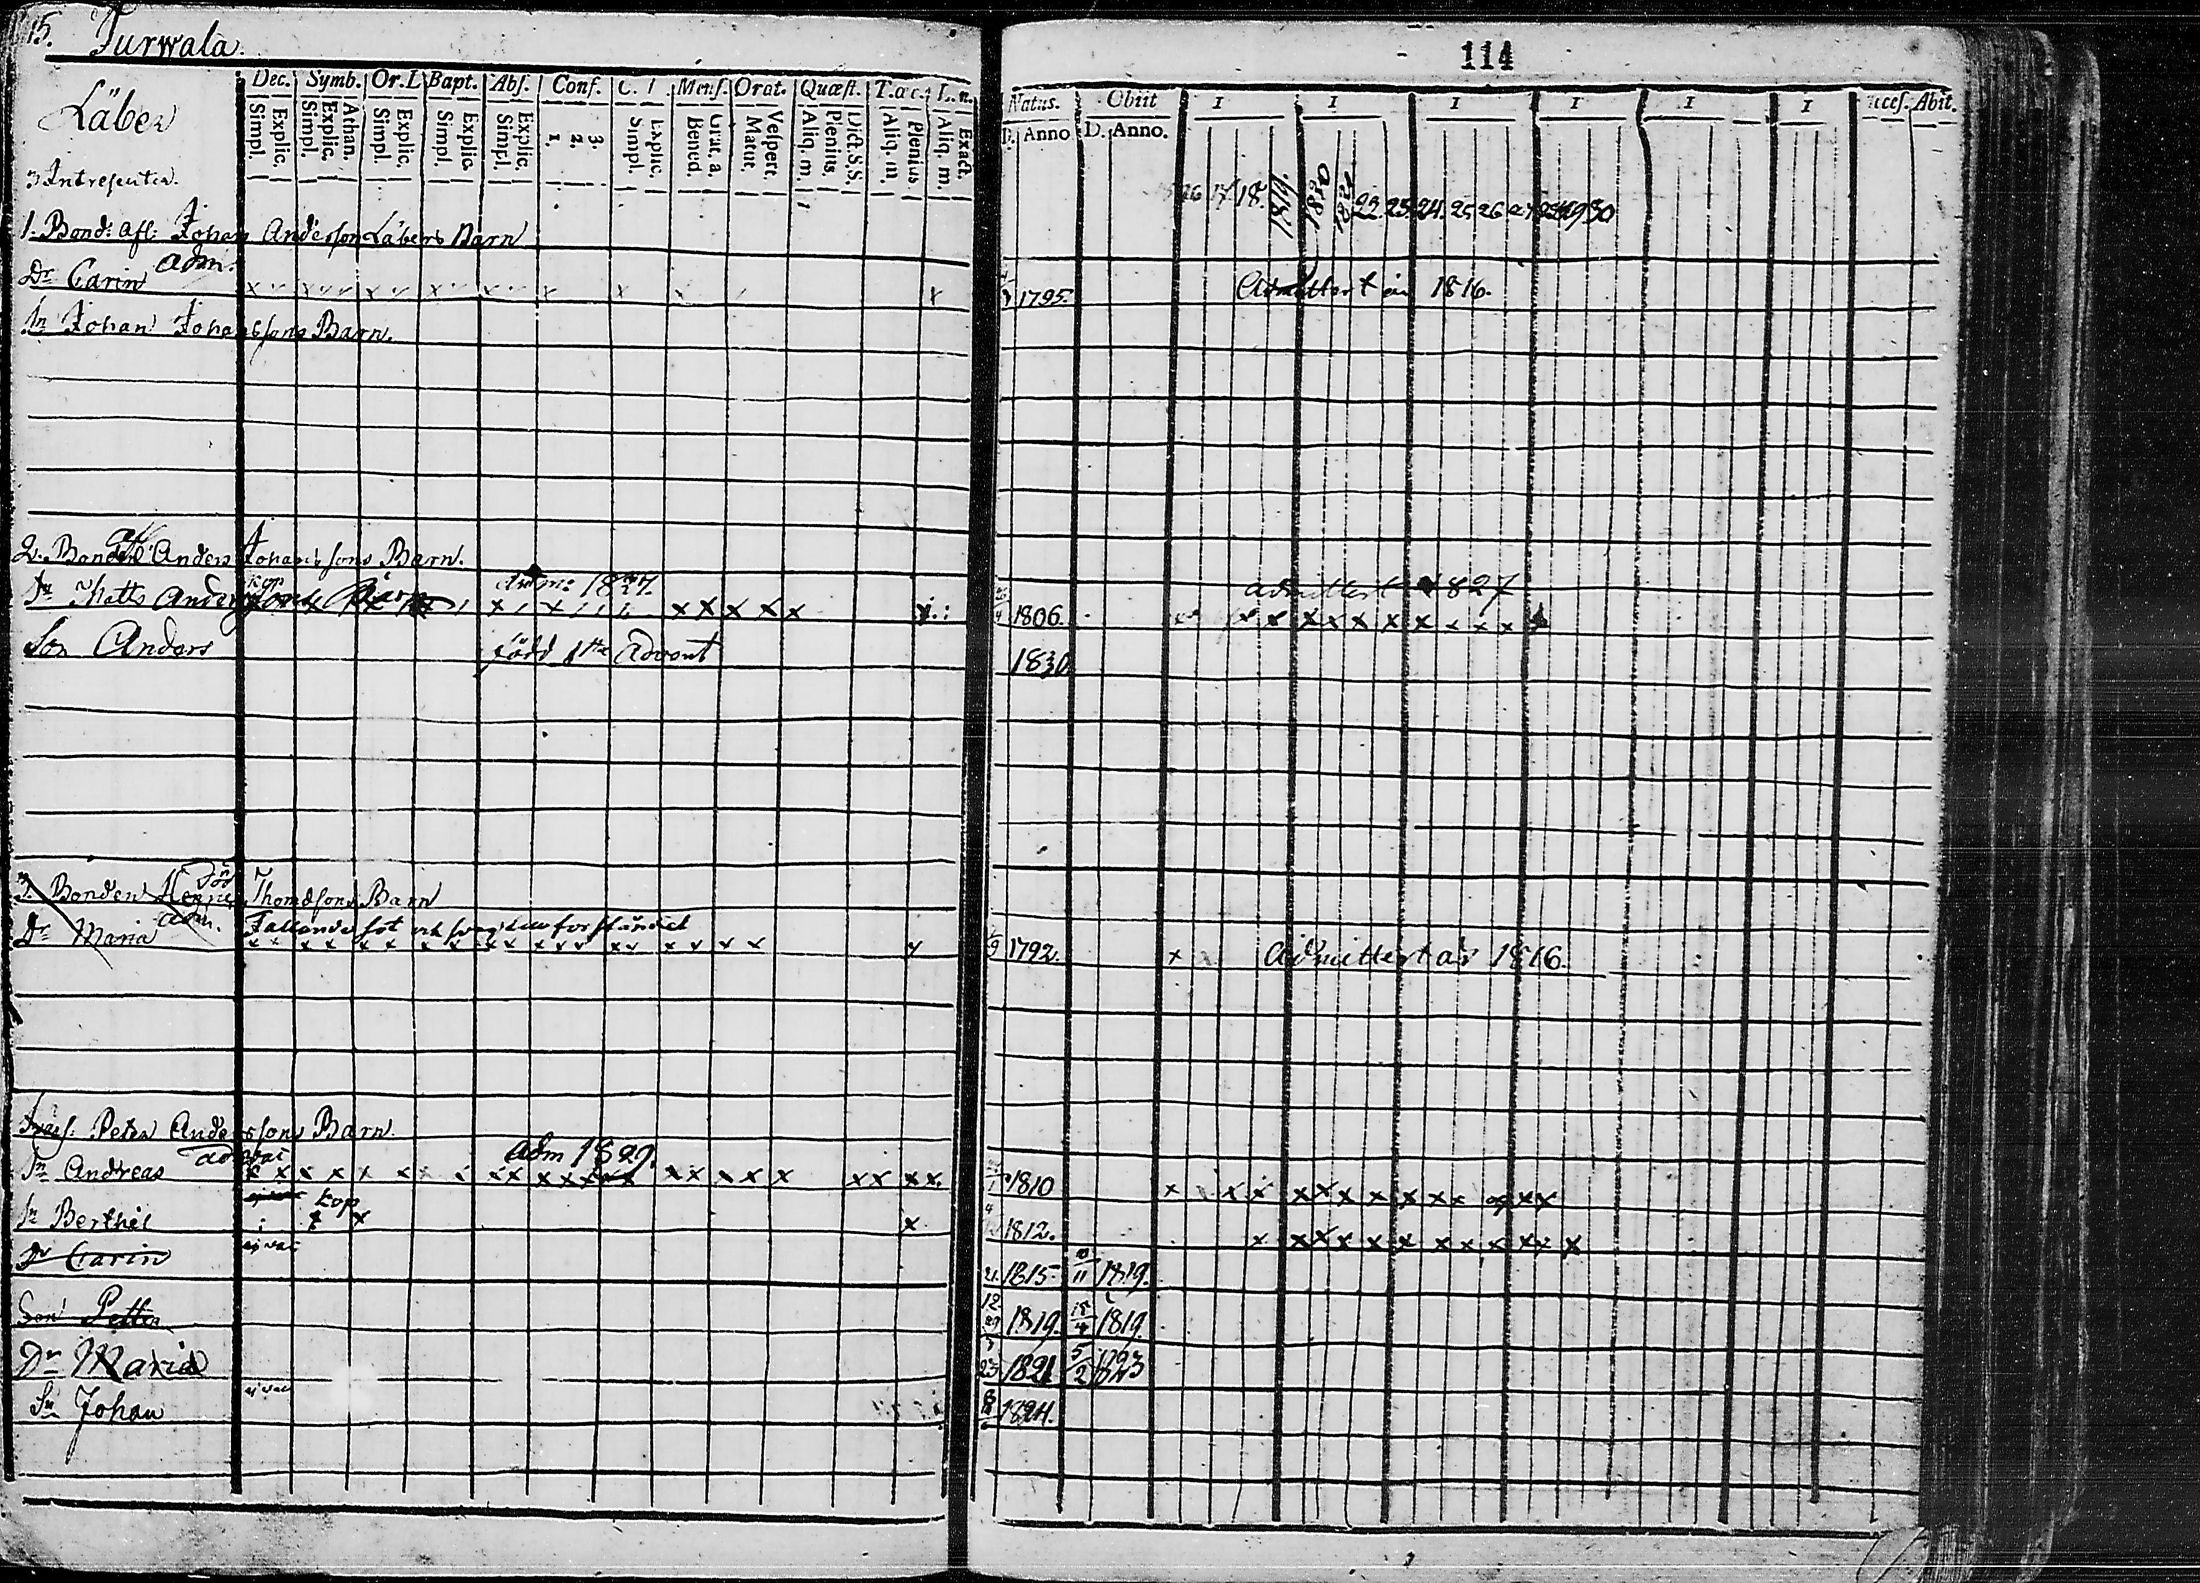 15. Turwala.
114
Läber
Dec. Symb. Or. D Bapt. Abs. Conf. C. Mens. Orat. Quæst. T. œc. L. n.
Simpl. Explic. Simpl. Explic. Athan. Simpl. Explic. Simpl. Explic. Simpl. Explic. 1. 2. 3. Simpl. Explic. Bened. Grat. a. Matut. Vespert. Aliq. m. Plenius, Dict. S. S. Aliq. m. Plenius Aliq. m. Exact.
Natus. Obiit 1 1 1 1 1 1 Abit.
Anno D. Anno.
18. 1819 1820 1821 22 23 24. 25 26 27 29 30
3 Intressenter.
1. Bond: afl: Johan Andersson Läbers Barn
adm.
Dr Carin
1795. Admittert år 1816.
Sn Johan Johanssons Barn.
2. Bonden Anders Johanssons Barn.
Sn Matts Andersson
1827.
admittert 1827
1806.
Son Anders född 1ste Advent 1830.
3. Bonden Thomassons Barn
adm.
Dr Maria
1792. Admittert år 1816.
Peter Anderssons Barn.
Sn Andreas adm 1829. 1810
kop
Sn Berthil 1812.
ej vac
Dr Carin 21. 1815. 11 1819.
Son Petter 12 1819. 4 1819.
Dr Maria 23 1821 5/2 1823
ej vac
Sn Johan 1824.